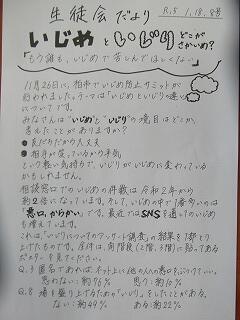 生徒会だより R.5 1.18.8号
いじめといじりどこがさかいめ?
「もう誰も、いじめで苦しんでほしくない」
11月26日に、柏市でいじめ防止サミットが
行われました。テーマは「いじめといじりの違い
についてです。
みなさんは"いじめ"と"いじり"の境目はどこか、
考えたことがありますか?
●友だちだから大丈夫
●相手が笑っているから平気
という軽い気持ちで、いじりがいじめに変わっている
かもしれません。
相談窓口でのいじめの件数は令和2年から
約2倍になっています。そして、いじめの中で1番多いのは
「悪口、からかい」です。最近ではSNSを通してのいじめ
も増えています。
これは、「いじりについてのアンケート調査」の結果を1部とり
上げたものです。全体は、南階段(2階、3階)に貼ってある
ポスターを見てください。
Q.3 匿名であれば、ネット上に他の人の悪口を書いていい。
思わない:約96% 思う:約10%
Q.8 場を盛り上げるため「いじり」をしたことがある。
ない:約49% ある:約22%